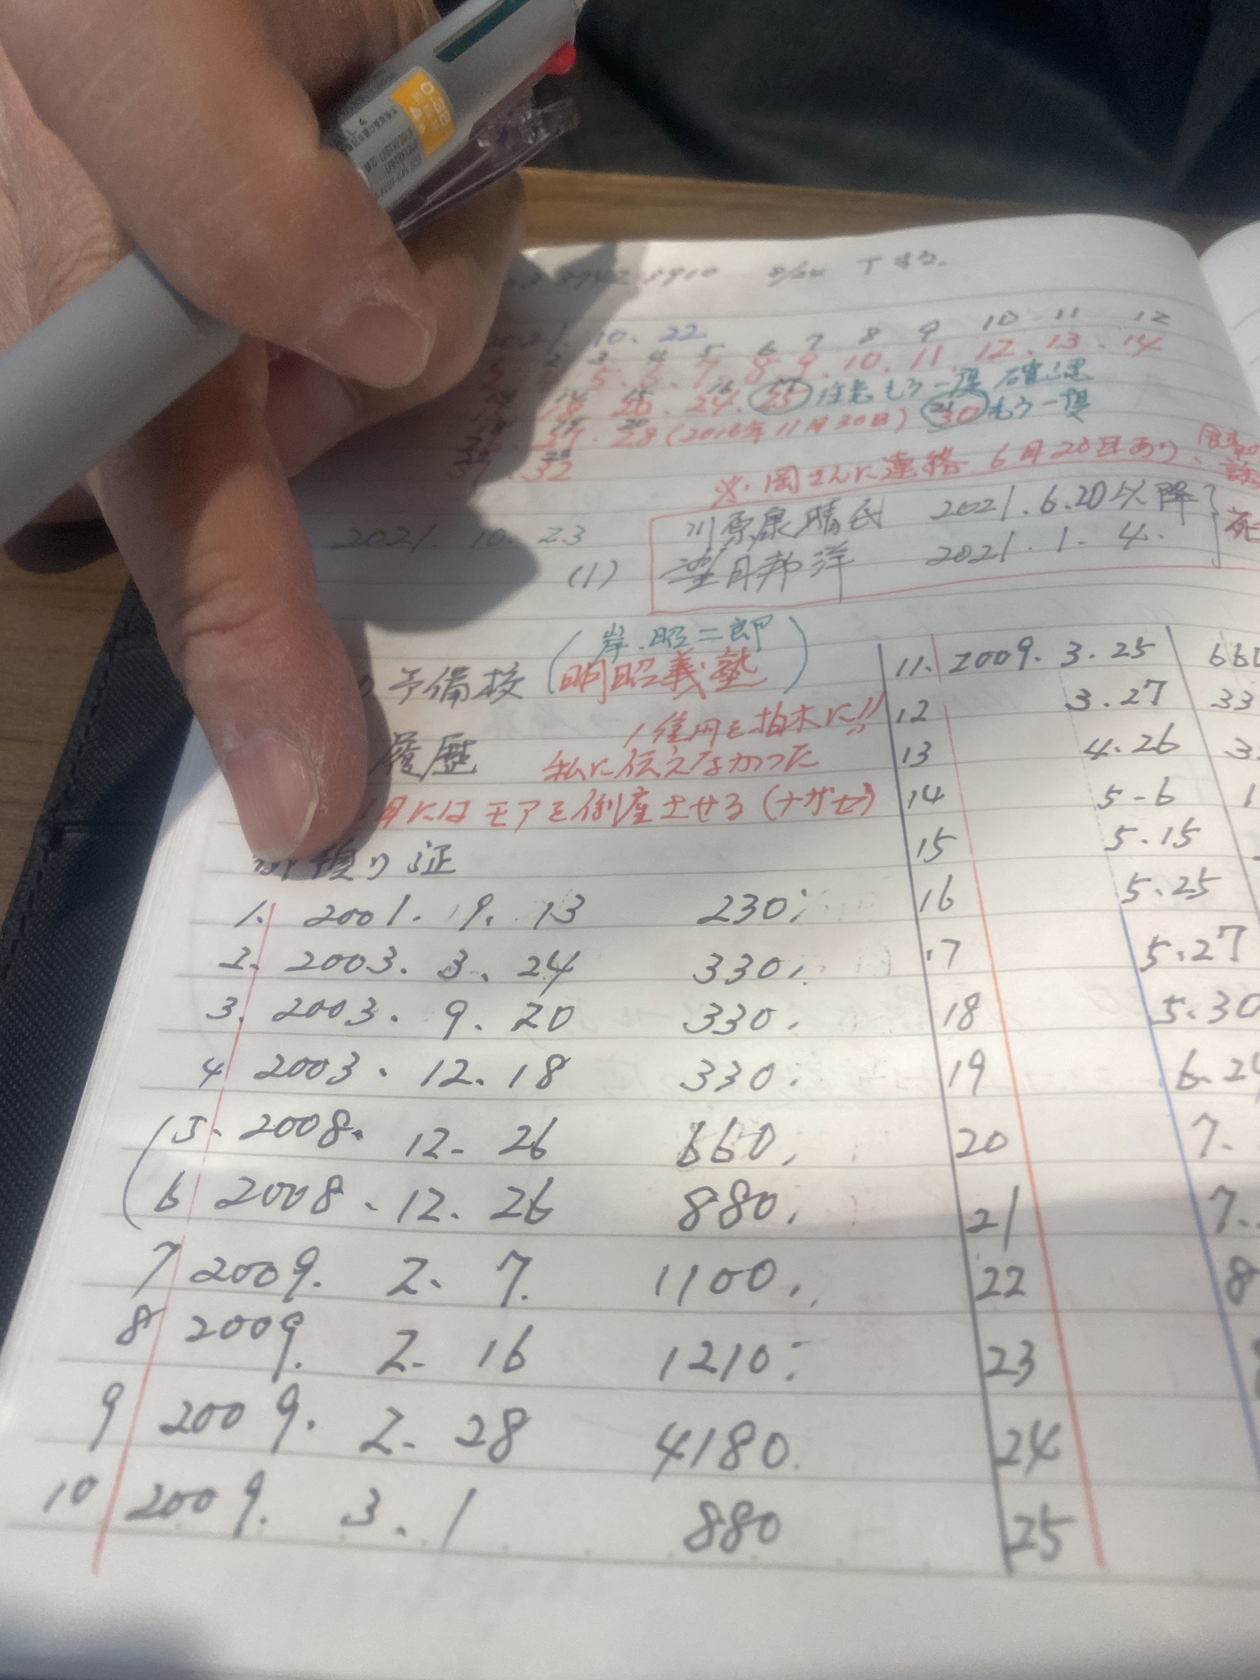 0.38
3742 3910 8/24
2021. 10. 22
3 4 5 6 7 8 9 10 11 12
5. 6. 7. 8. 9. 10. 11. 12. 13. 14
18 20. 24. 25 注意もう一度確認
27. 28 (2016年11月30日) 30 もう一度
31. 32
※岡さんに連絡 6月20日あり、
2021. 10. 23
川原康晴氏 2021. 6. 20以降
(1) 望月邦洋 2021. 1. 4.
(岸 昭二郎)
予備校 (明昭義塾)
1億円を柏木に!!
履歴 私に伝えなかった
月にはモアを倒産させる(ナガセ)
預り証
1. 2001. 9. 13 230
2. 2003. 3. 24 330
3. 2003. 9. 20 330
4 2003. 12. 18 330
5. 2008. 12. 26 660
6 2008. 12. 26 880
7 2009. 2. 7. 1100
8 2009. 2. 16 1210
9 2009. 2. 28 4180
10 2009. 3. 1 880
11. 2009. 3. 25 660
12 3. 27 33
13 4. 26 3
14 5-6 1
15 5. 15
16 5. 25
17 5. 27
18 5. 30
19 6. 24
20 7.
21 7.
22 8
23
24
25